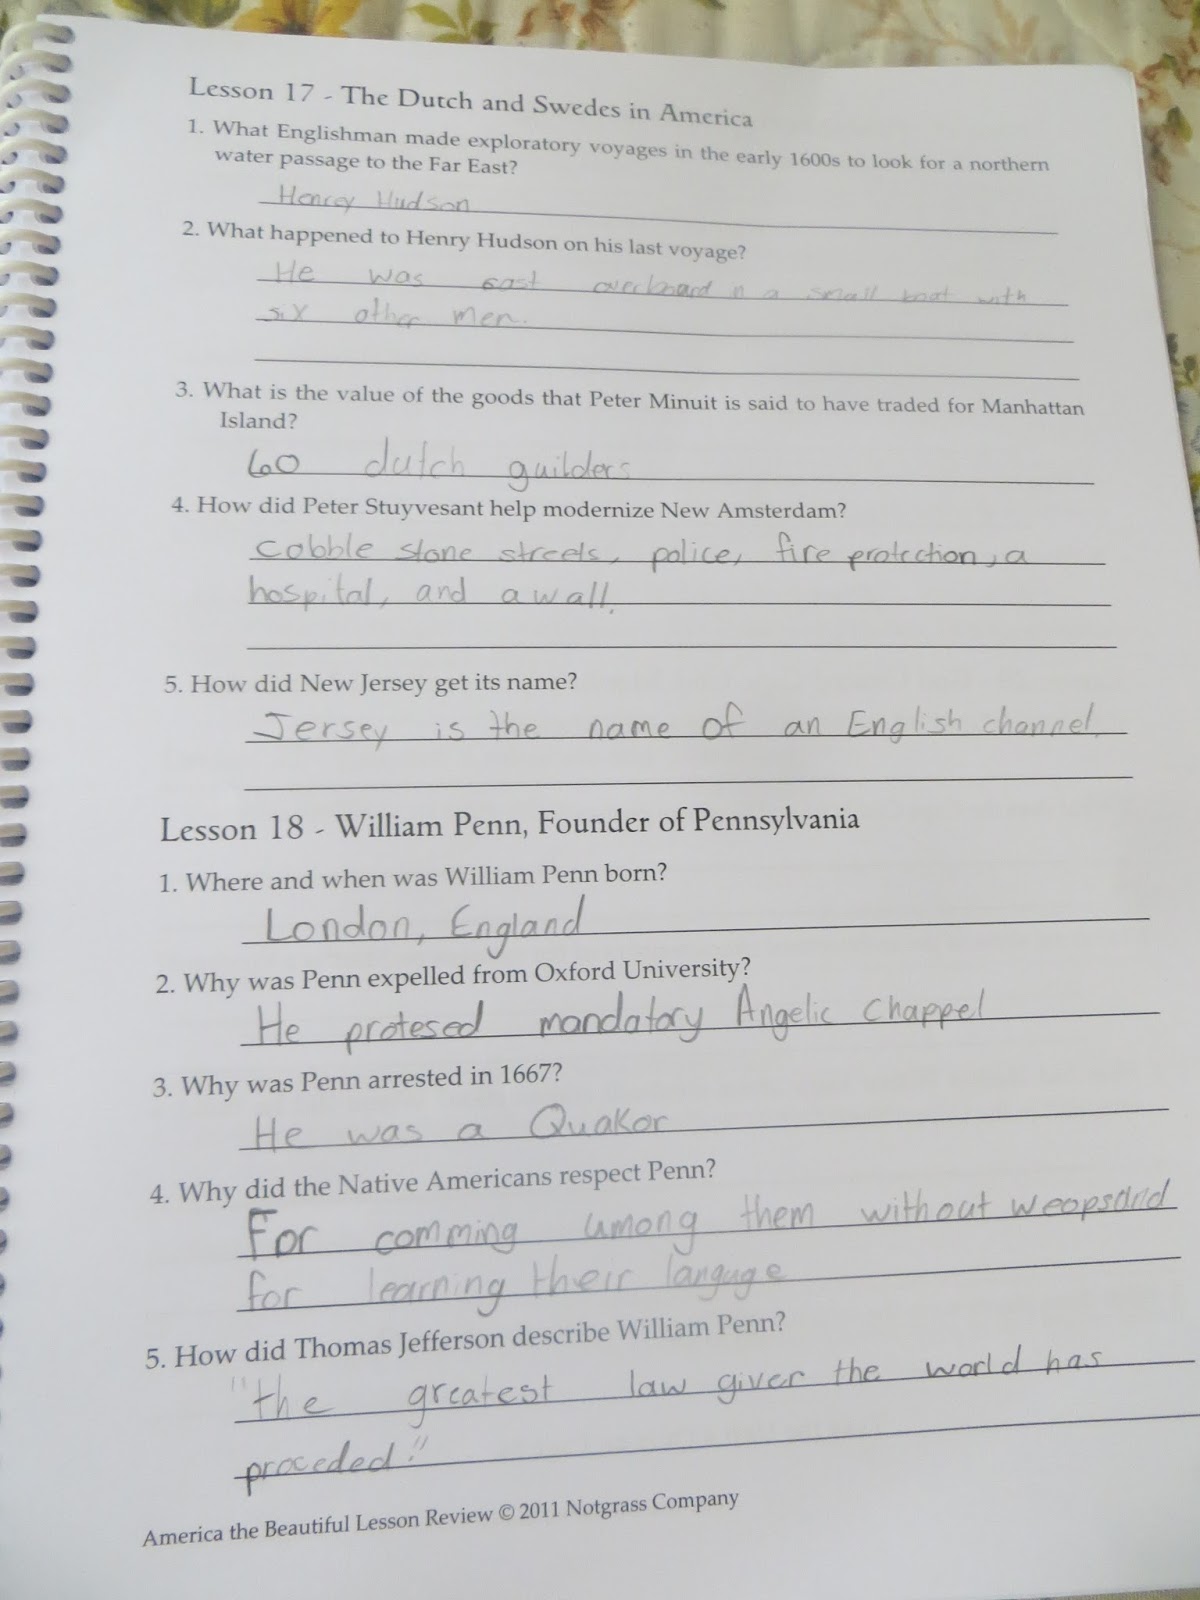 Lesson 17 - The Dutch and Swedes in America
1. What Englishman made exploratory voyages in the early 1600s to look for a northern
water passage to the Far East?
Henrey Hudson
2. What happened to Henry Hudson on his last voyage?
He was cast overboard n a small boat with
six other men.
3. What is the value of the goods that Peter Minuit is said to have traded for Manhattan
Island?
60 dutch guilders
4. How did Peter Stuyvesant help modernize New Amsterdam?
Cobble stone streets, police, fire protection, a
hospital, and a wall.
5. How did New Jersey get its name?
Jersey is the name of an English channel.
Lesson 18 - William Penn, Founder of Pennsylvania
1. Where and when was William Penn born?
London, England
2. Why was Penn expelled from Oxford University?
He protesed mandatory Angelic Chappel
3. Why was Penn arrested in 1667?
He was a Quakor
4. Why did the Native Americans respect Penn?
For comming among them without weopsand
for learning their languge
5. How did Thomas Jefferson describe William Penn?
"the greatest law giver the world has
proceded."
America the Beautiful Lesson Review © 2011 Notgrass Company